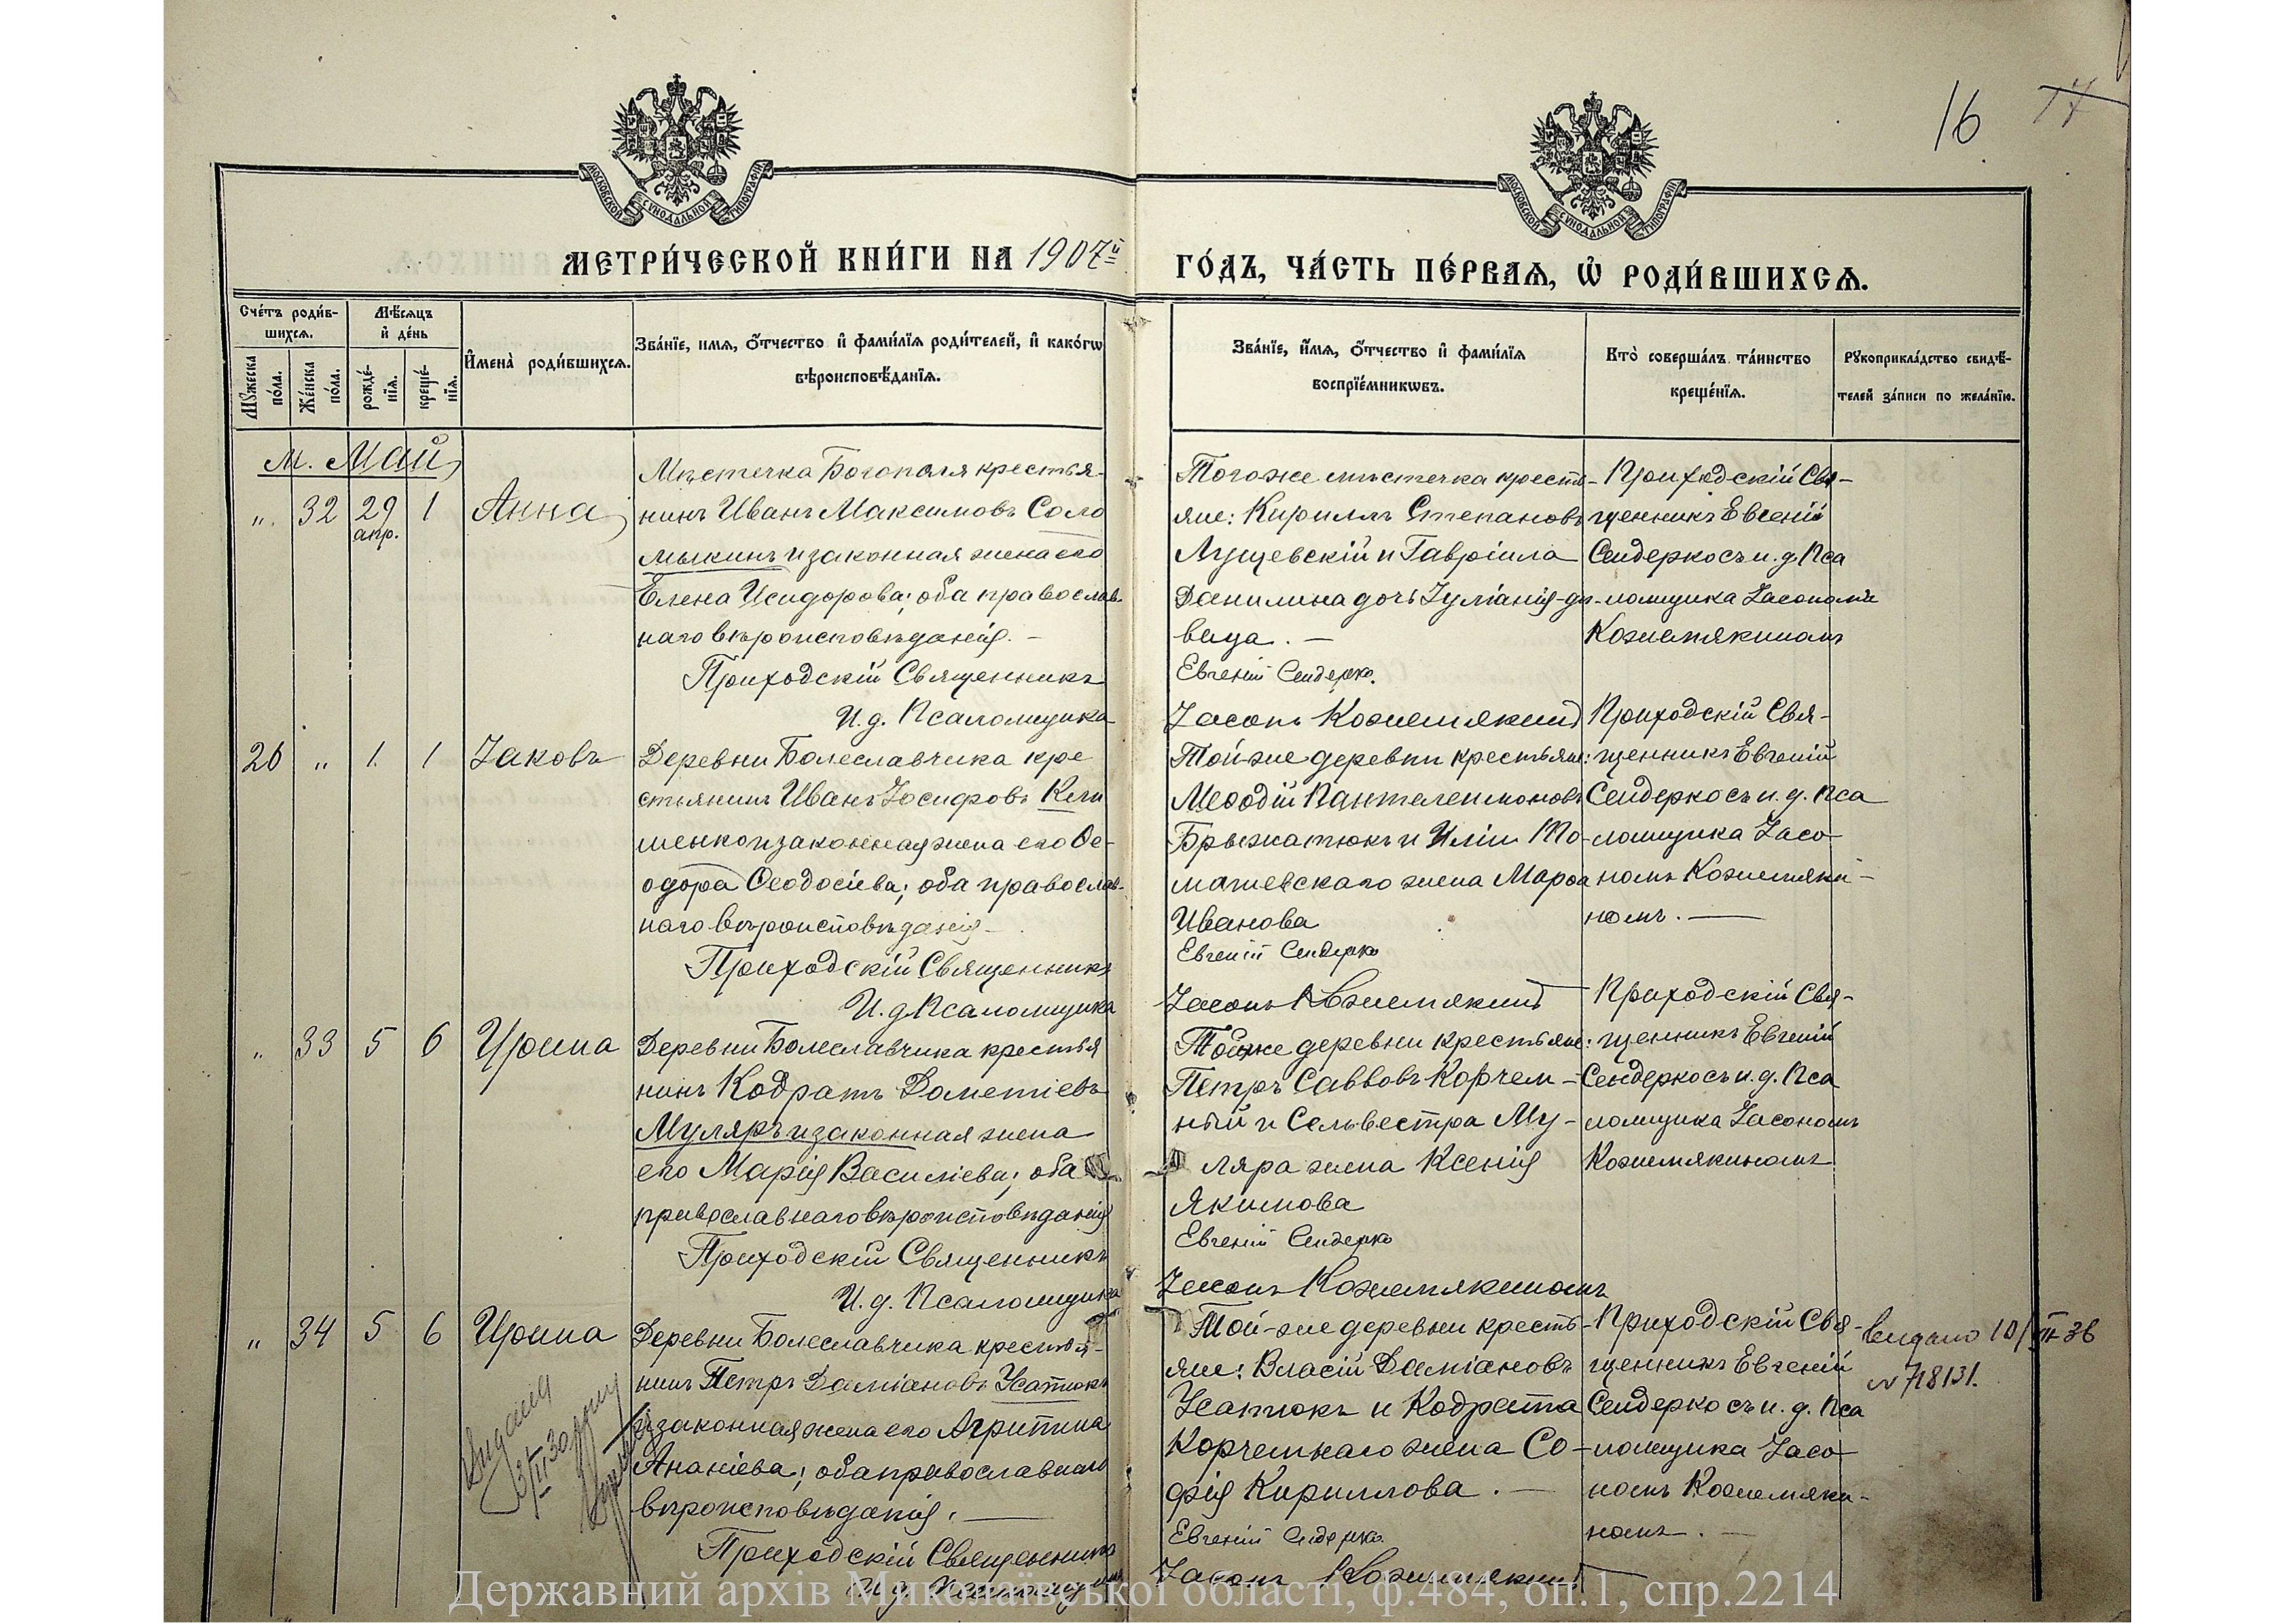 16 17
МОСКОВСКОЙ СѴНОДАЛЬНОЙ ТИПОГРАФІИ
МОСКОВСКОЙ СѴНОДАЛЬНОЙ ТИПОГРАФІИ
МЕТРИ́ЧЕСКОЙ КНИ́ГИ НА 1907й
ГО́ДЪ, ЧА́СТЬ ПЕ́РВАѦ, Ѽ РОДИ́ВШИХСѦ.
Сче́тъ роди́в-
шихсѧ.
Мꙋжеска по́ла.
Же́нска по́ла.
Мѣ́сѧцъ
и҆ де́нь
рожде́-
нїѧ.
креще́-
нїѧ.
И҆мена̀ роди́вшихсѧ.
Зва́нїе, имѧ, о҆́тчество и҆ фами́лїѧ роди́телей, и҆ како́гѡ
вѣроисповѣ́данїѧ.
Зва́нїе, и҆́мѧ, о҆́тчество и҆ фами́лїѧ
воспрїе́мникѡвъ.
Кто̀ соверша́лъ та́инство
креще́нїѧ.
Рꙋкоприкла́дство свидѣ́-
телей за́писи по жела́нїю.
м. Май
„ 32 29 апр. 1 Анна
Мѣстечка Богополя крестья-
нинъ Иванъ Максимовъ Соло
мыкинъ и законная жена его
Елена Исидорова; оба православ-
наго вѣроисповѣданія. –
Приходскій Священникъ
И. д. Псаломщика
Того же мѣстечка крестья-
яне: Кириллъ Степановъ
Лущевскій и Гавріила
Данилина дочь Іуліанія – дѣ-
вица. –
Евгеній Сендерко.
Іасонъ Кожемякинъ
Приходскій Свя-
щенникъ Евгеній
Сендерко съ и. д. Пса
ломщика Іасономъ
Кожемякиномъ
26 „ 1 1 Іаковъ
Деревни Болеславчика кре
стьянинъ Иванъ Іосифовъ Кли
менко и законная жена его Ѳе-
одора Ѳеодосіева; оба православ-
наго вѣроисповѣданія –
Приходскій Священникъ
И. д. Псаломщика
Той-же деревни крестьяне:
Меѳодій Пантелеимоновъ
Брыжатюкъ и Иліи То-
машевскаго жена Марѳа
Иванова
Евгеній Сендерко
Іасонъ Кожемякинъ
Приходскій Свя-
щенникъ Евгеній
Сендерко съ и. д. Пса
ломщика Іасо-
номъ Кожемяки-
номъ. –
„ 33 5 6 Ирина
Деревни Болеславчика крестья
нинъ Кодратъ Дометіевъ
Муляръ и законная жена
его Марія Василіева; оба
православнаго вѣроисповѣданія
Приходскій Священникъ
И. д. Псаломщика
Той же деревни крестьяне:
Петръ Саввовъ Корчем-
ный и Сельвестра Му-
ляра жена Ксенія
Якимова
Евгеній Сендерко
Іасонъ Кожемякиномъ
Приходскій Свя-
щенникъ Евгеній
Сендерко съ и. д. Пса
ломщика Іасономъ
Кожемякиномъ
„ 34 5 6 Ирина
Деревни Болеславчика крестья-
нинъ Петръ Даміановъ Усатюкъ
и законная жена его Агрипина
Ананіева; оба православнаго
вѣроисповѣданія. –
Приходскій Священникъ
И. д. Псаломщика
Той-же деревни кресть-
яне: Власій Даміановъ
Усатюкъ и Кодрата
Корчемнаго жена Со-
фія Кириллова. –
Евгеній Сендерко
Іасонъ Кожемякинъ
Приходскій Свя-
щенникъ Евгеній
Сендерко съ и. д. Пса
ломщика Іасо-
номъ Кожемяки-
номъ. –
видано 10/III 36
N 718131.
Державний архів Миколаївської області, ф.484, оп.1, спр.2214